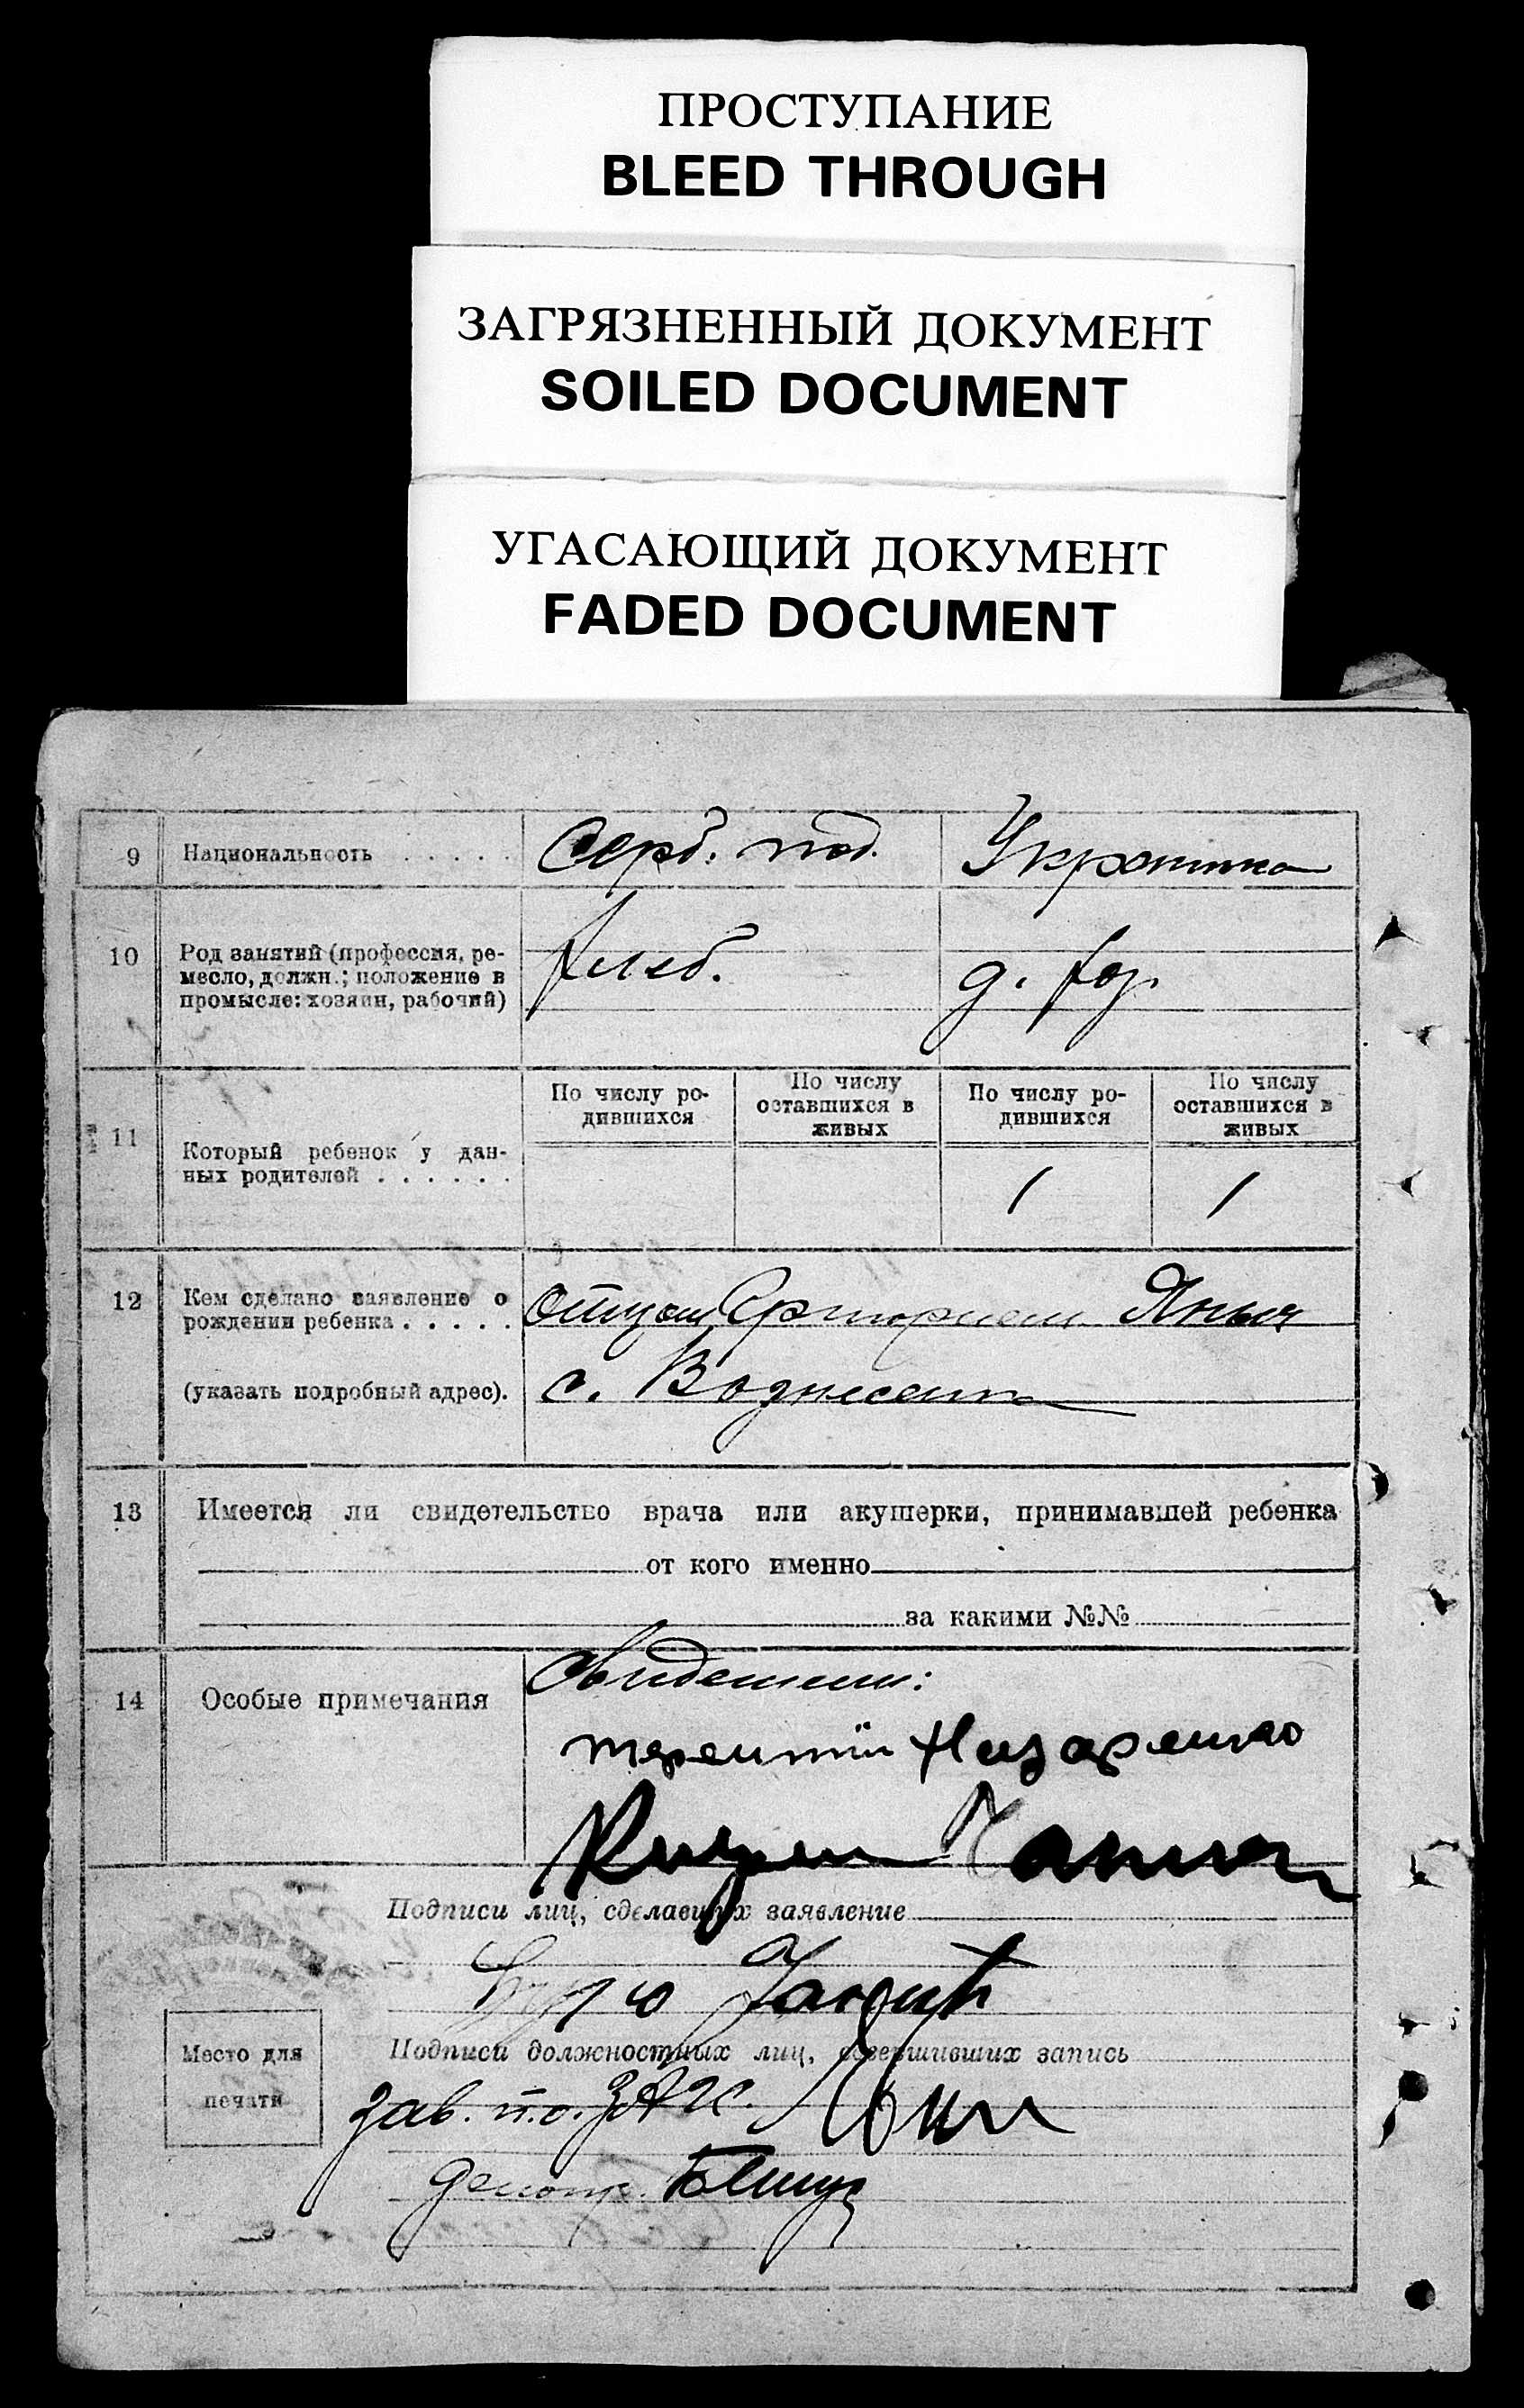 ПРОСТУПАНИЕ
BLEED THROUGH
ЗАГРЯЗНЕННЫЙ ДОКУМЕНТ
SOILED DOCUMENT
УГАСАЮЩИЙ ДОКУМЕНТ
FADED DOCUMENT
9 Национальность . . . . . Серб. под. Украинка
10 Род занятий (профессия, ре-
месло, должн.; положение в
промысле: хозяин, рабочий)
хлеб. д. хоз.
По числу ро-
дившихся
По числу
оставшихся в
живых
По числу ро-
дившихся
По числу
оставшихся в
живых
11 Который ребенок у дан-
ных родителей . . . . . .
1 1
12 Кем сделано заявление о
рождении ребенка . . . . .
отцом
(указать подробный адрес).
с. Вознесенка
13 Имеется ли свидетельство врача или акушерки, принимавшей ребенка
от кого именно
за какими №№
14 Особые примечания
Свидетели:
терентий Назаренко
Подписи лиц, сделавших заявление
Подписи должностных лиц, совершивших запись
Место для
печати
зав. п.о. ЗАГС.